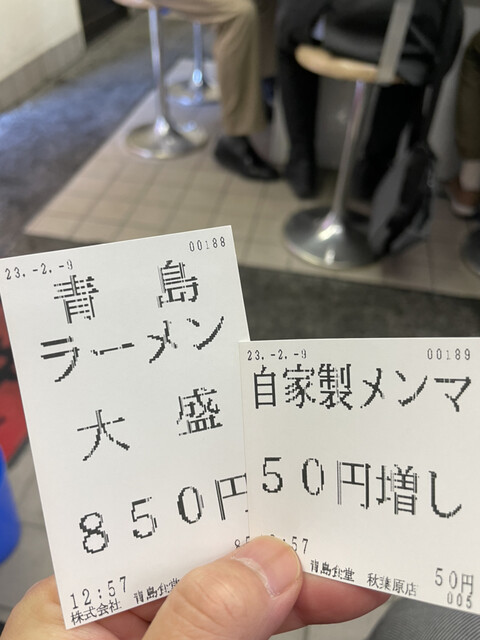 23.-2.-9 00188
青島
ラーメン
大盛
850円
12:57
株式会社 青島食堂
23.-2.-9 00189
自家製メンマ
50円増し
:57
青島食堂 秋葉原店 50円
005